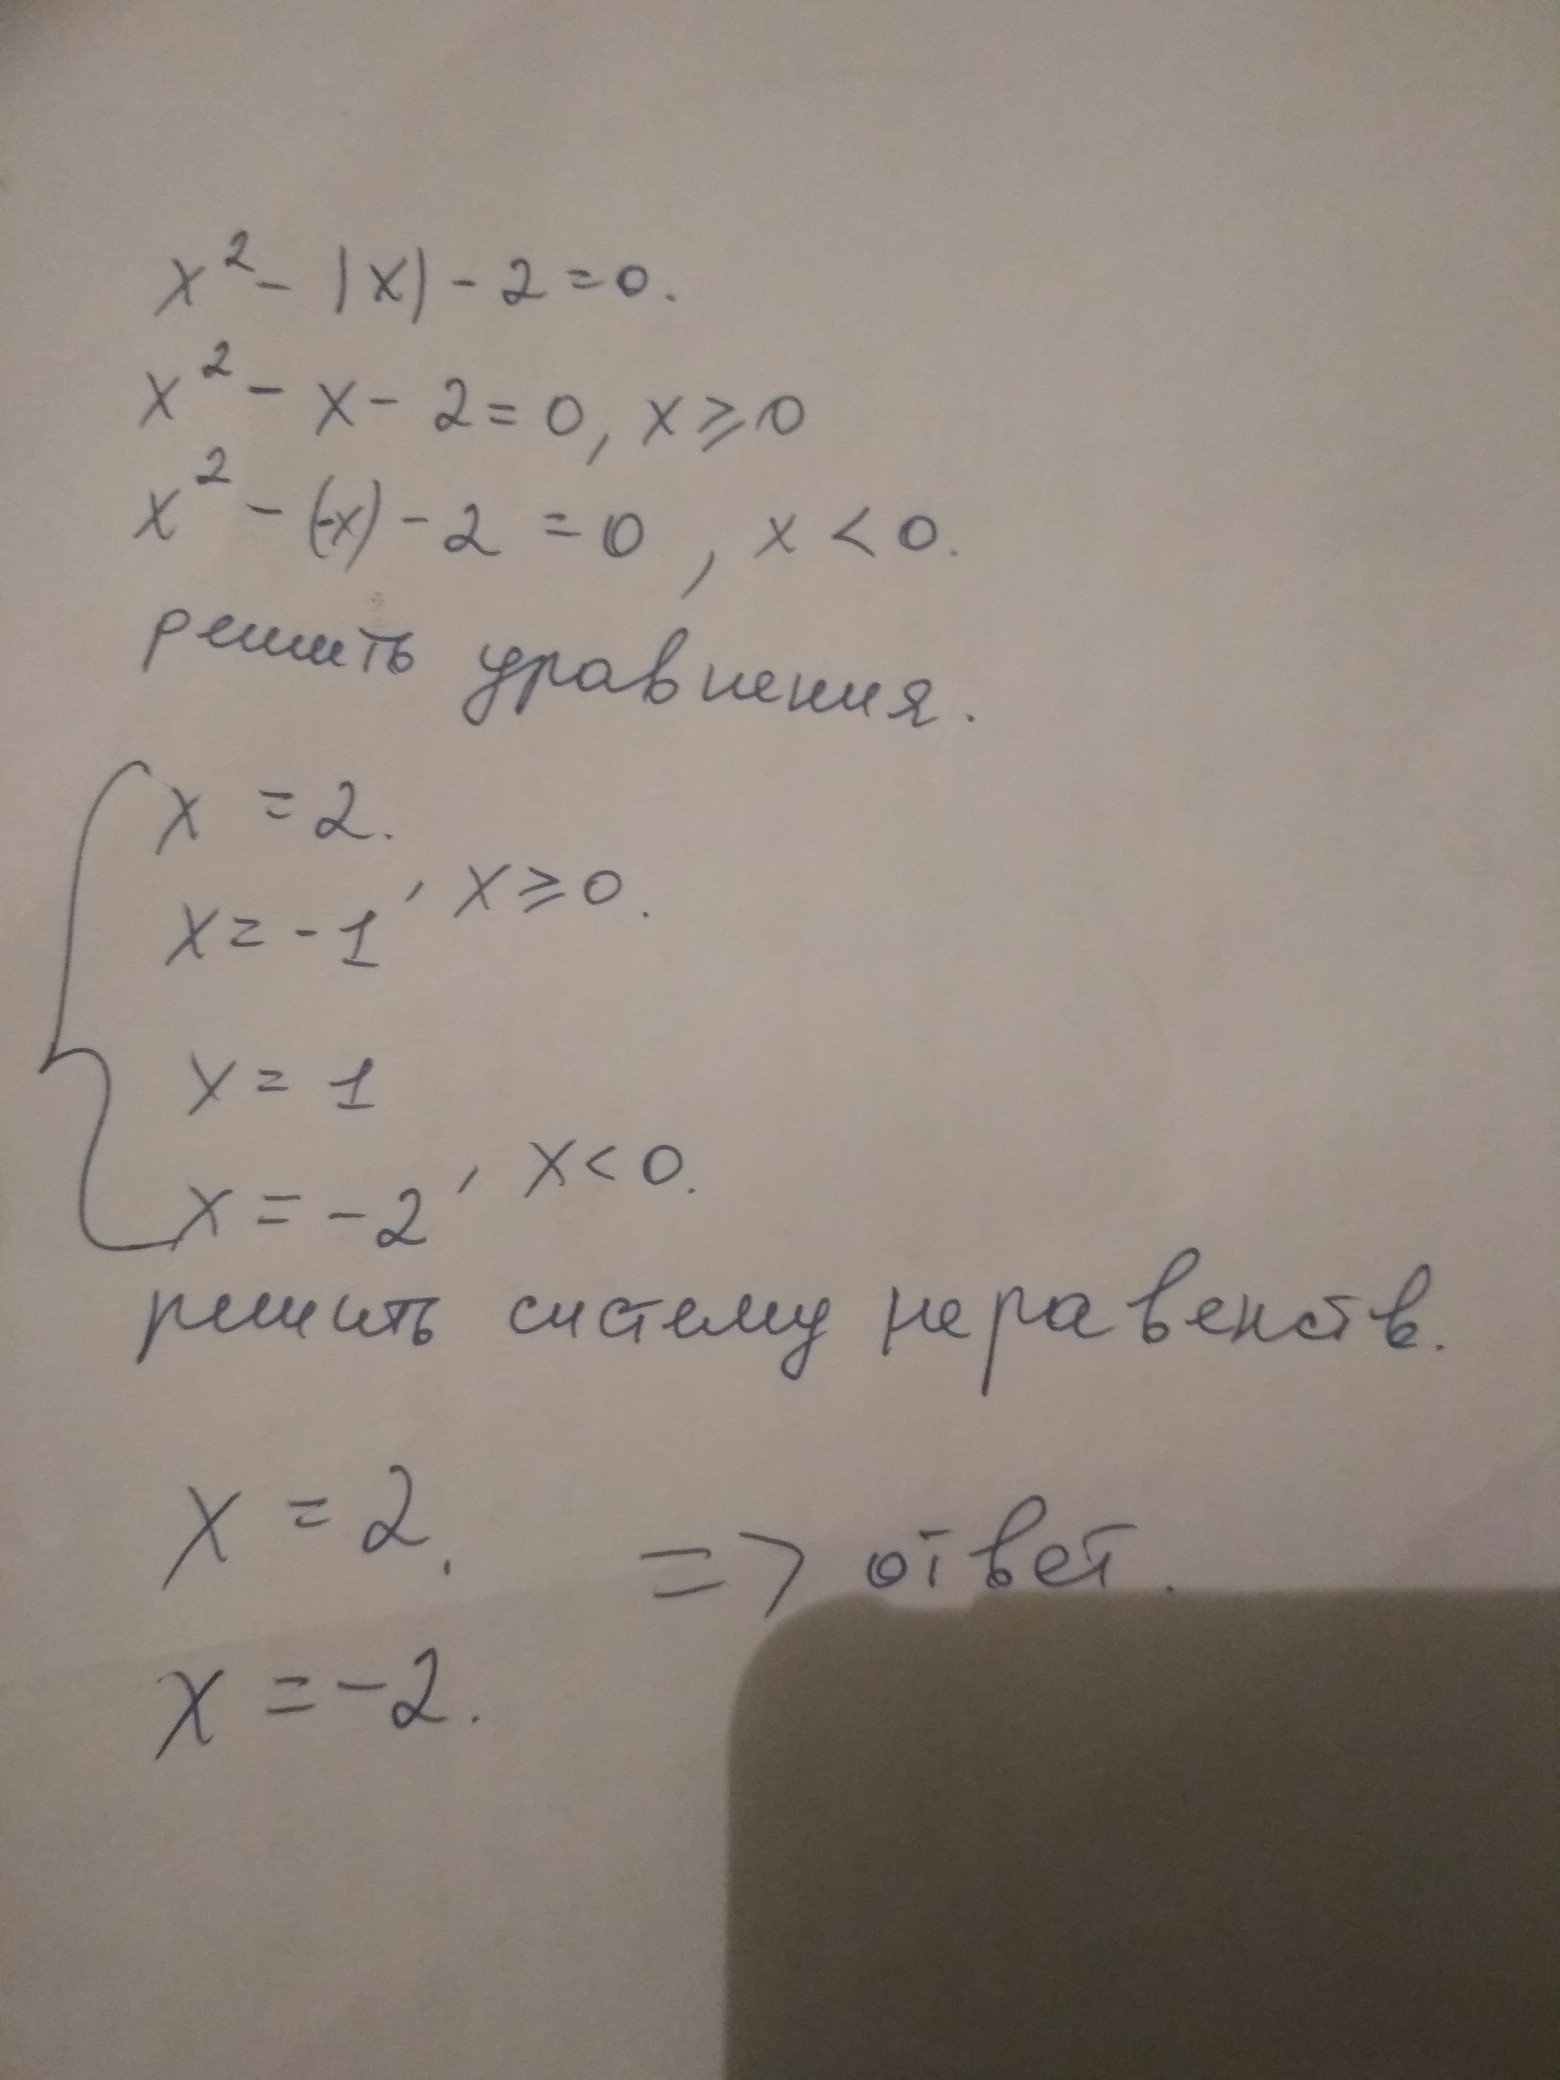 x² - |x| - 2 = 0.
x² - x - 2 = 0, x ⩾ 0
x² - (-x) - 2 = 0, x < 0.
решить уравнения.
x = 2.
x = -1, x ⩾ 0.
x = 1
x = -2, x < 0.
решить систему неравенств.
x = 2. => ответ.
x = -2.